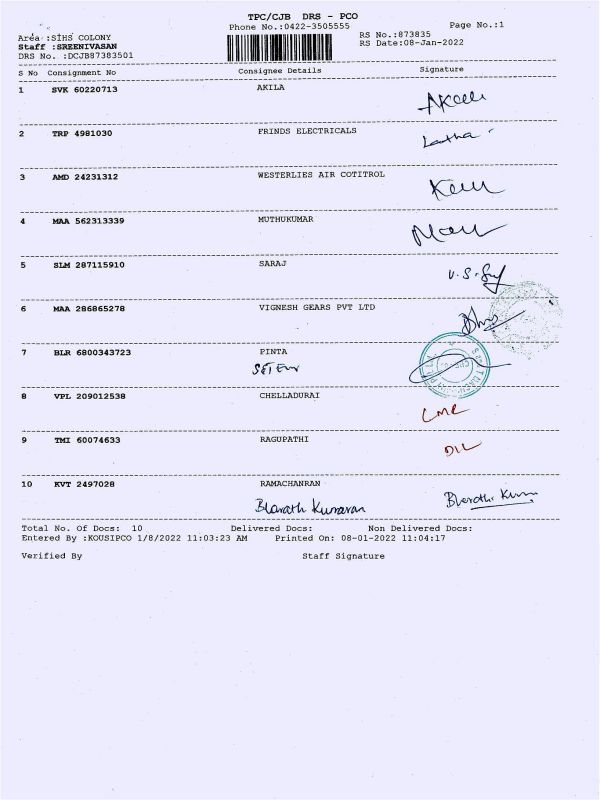 TPC/CJB DRS - PCO
Phone No.:0422-3505555
Page No.:1
Area :SIHS COLONY
RS No.:873835
Staff :SREENIVASAN
RS Date:08-Jan-2022
DRS No. :DCJB87383501
S No Consignment No Consignee Details Signature
1 SVK 60220713 AKILA
2 TRP 4981030 FRINDS ELECTRICALS
Latha
3 AMD 24231312 WESTERLIES AIR COTITROL
4 MAA 562313339 MUTHUKUMAR
5 SLM 287115910 SARAJ
6 MAA 286865278 VIGNESH GEARS PVT LTD
7 BLR 6800343723 PINTA
8 VPL 209012538 CHELLADURAI
9 TMI 60074633 RAGUPATHI
10 KVT 2497028 RAMACHANRAN
Bharath Kumaran
Total No. Of Docs: 10 Delivered Docs: Non Delivered Docs:
Entered By :KOUSIPCO 1/8/2022 11:03:23 AM Printed On: 08-01-2022 11:04:17
Verified By Staff Signature